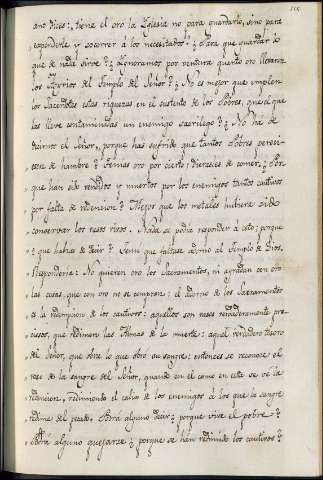 ano dices: tiene el oro la Yglesia no para guardarlo, sino para
espenderle, y socorrer à los necesitados. ¿Para que guardar lo
que de nada sirve? ¿Ygnoramos por ventura quanto oro llevaron
los Asyrios del Templo del Señor? ¿No es mejor que empleen
los Sacerdotes estas riquezas en el sustento de los Pobres, que el que
las lleve contaminadas un enemigo sacrilego? ¿No ha de
decirnos el Señor, porque has sufrido que tantos Pobres pereci-
esen de hambre? Tenias oro por cierto; dierasles de comer. ¿Por
que han sido vendidos y muertos por los enemigos tantos cautivos
por falta de redencion? Mejor que los metales hubiera sido
conservar los vasos vivos. Nada se podia responder à esto; porque
¿que habias de decir? Temi que faltase adorno al Templo de Dios.
Responderia: No quieren oro los Sacramentos, ni agradan con oro
las cosas, que con oro no se compran: el adorno de los Sacramentos
es la redempcion de los cautivos: aquellos son vasos verdaderamente pre-
ciosos, que redimen las Almas de la muerte: aquel verdadero tesoro
del Señor, que obra lo que obró su sangre: entonces se reconoce el
vaso de la sangre del Señor, quando en el como en esta se vè la
redencion, redimiendo el caliz de los enemigos à los que la sangre
redime del pecado. Podrá alguno decir ¿porque vive el pobre?
¿Podrá alguno quejarse ¿porque se han redimido los cautivos?